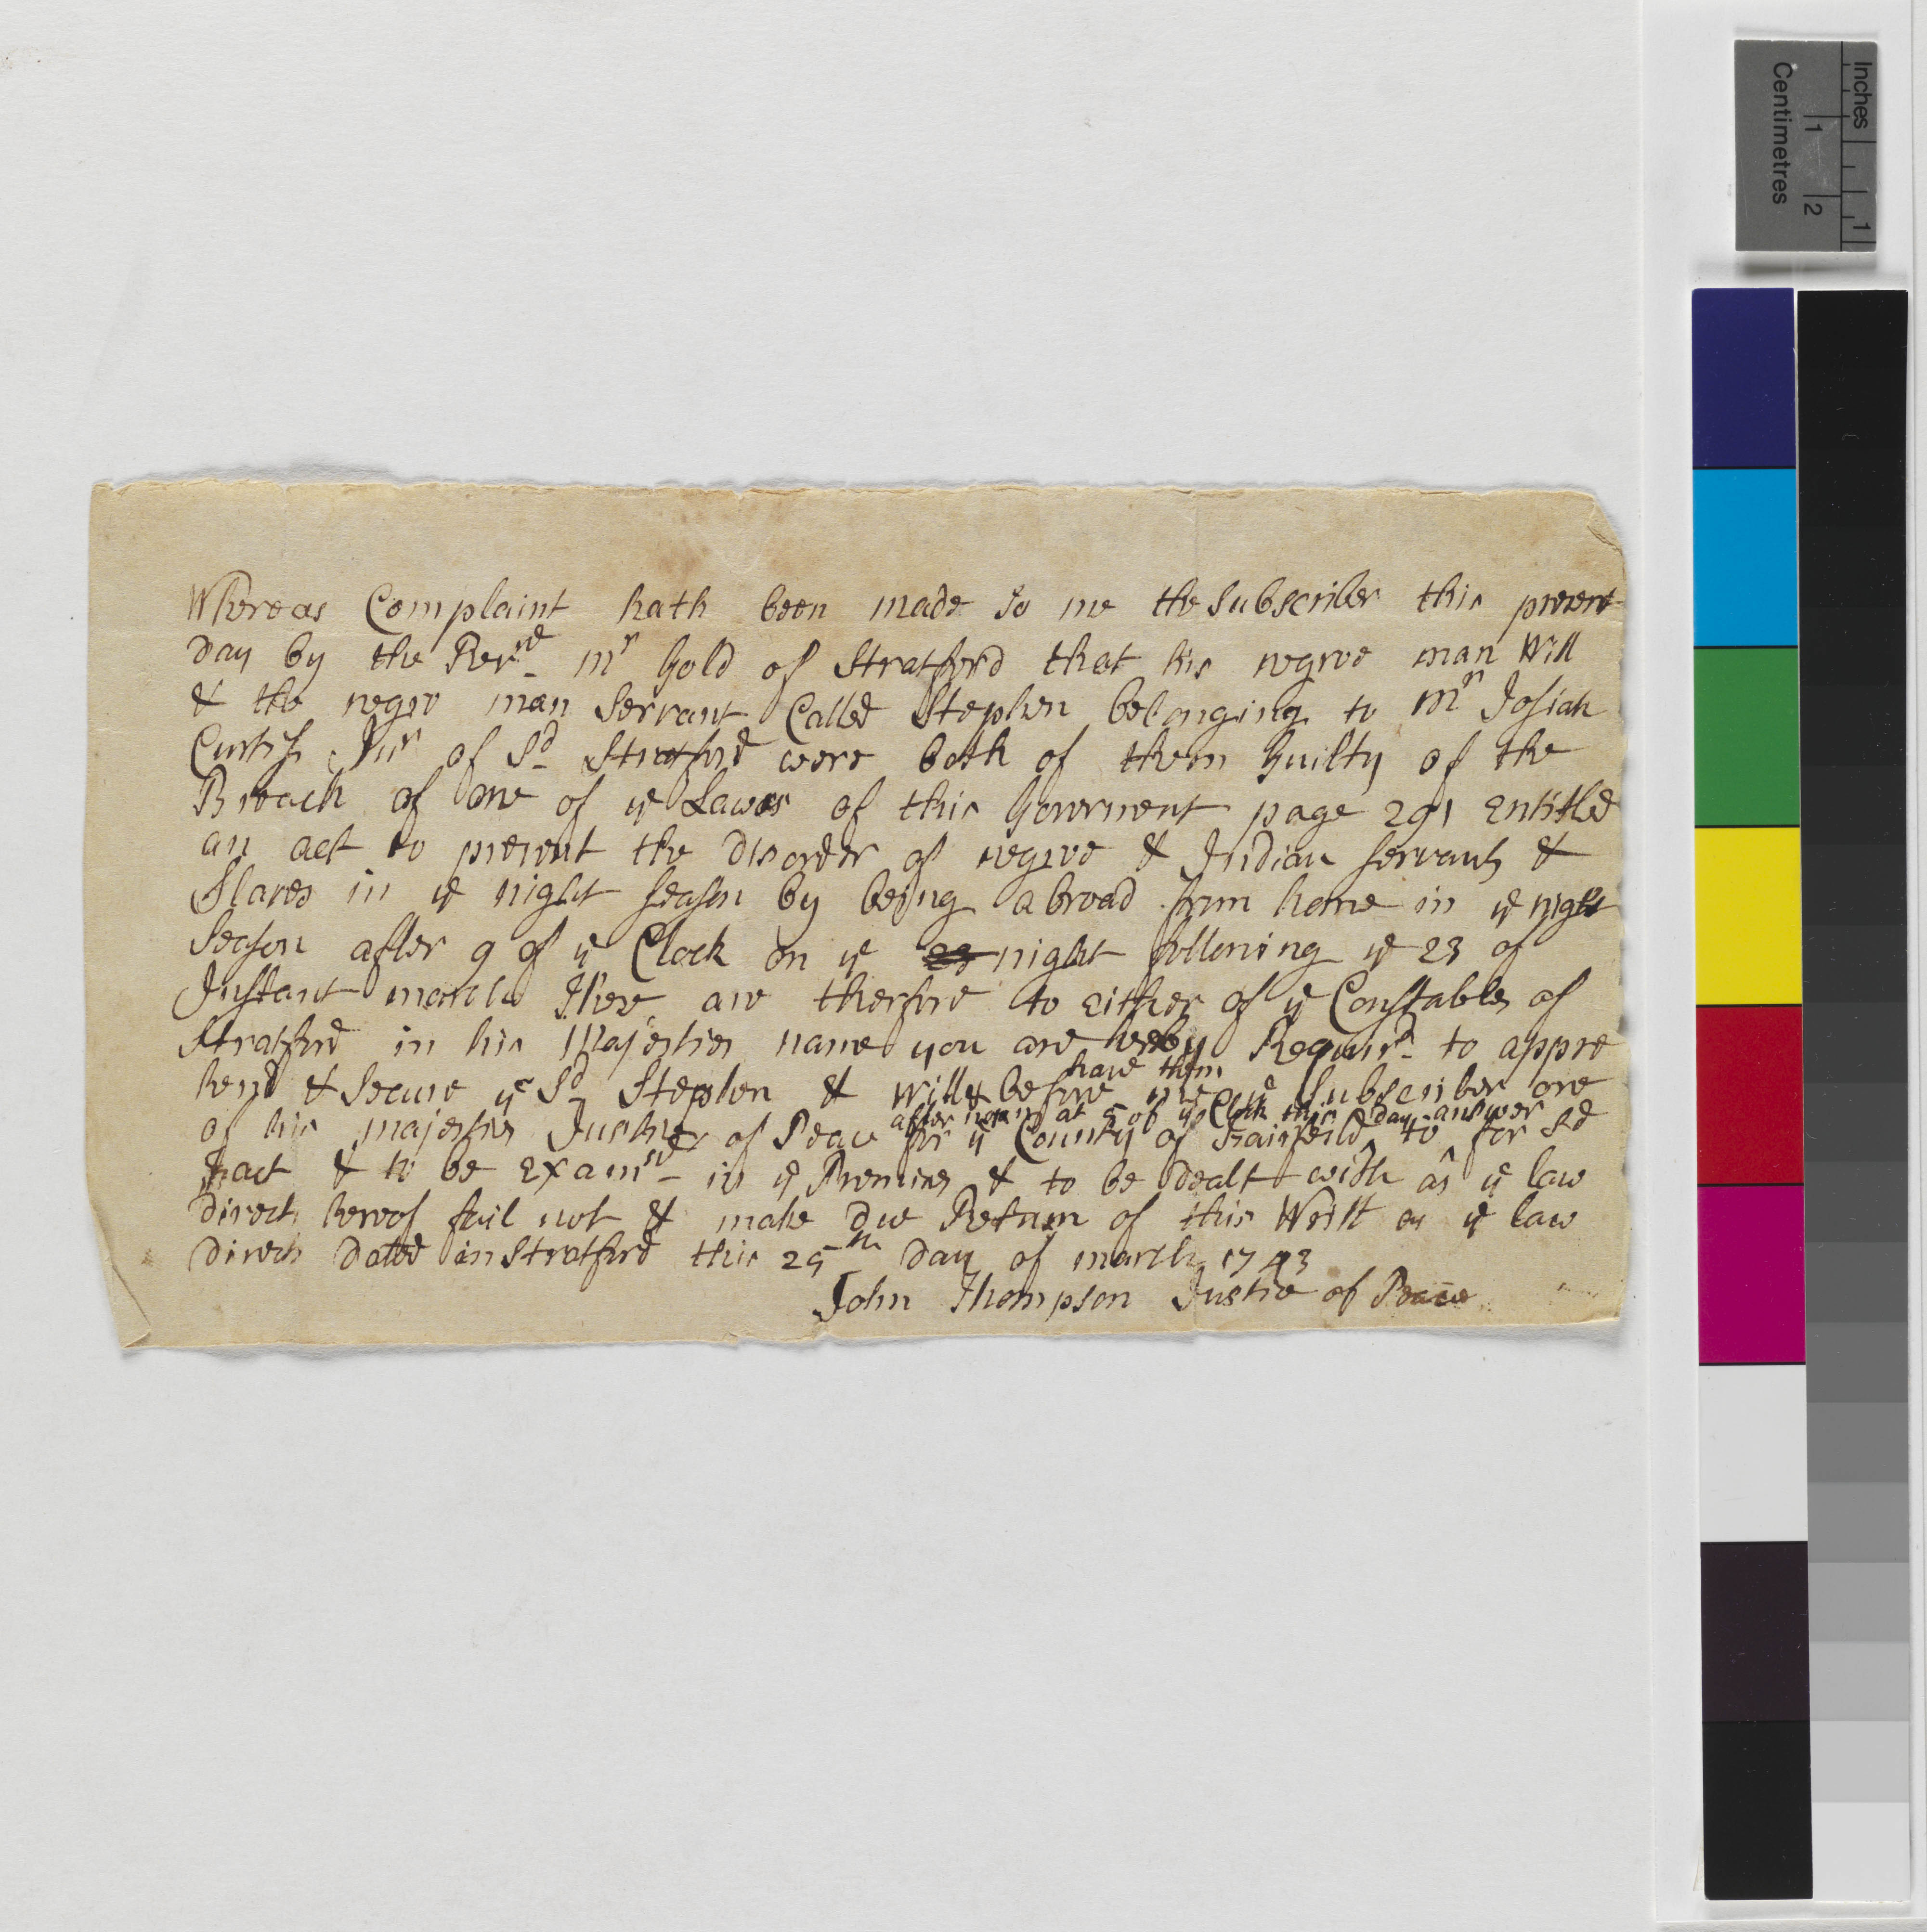 Whereas Complaint hath been made to me the Subscriber this present
day by the Revrd mr Gold of Stratford that his negroe man Will
& the negro man Servant Called Stephen belonging to mr Josiah
Curtiss Junr of Sd Stratford were both of them Guilty of the
Breach of one of ye Lawes of this Goverment page 291 entitled
an act to prevent the disorder of negroe & Indian servants &
Slaves in ye night season by being abroad from home in ye night
Season after 9 of ye Clock on ye 23 night following ye 23 of
Instant march These are therfore to either of ye Constables of
Stratford in his Majesties name you are hereby Requird to appre
hend & Secure ye Sd Stephen & Will & before me ye Subscriber one
have them
of his majesties Justices of Peace for ye County of Fairfeild to for Sd
after noon at 5 of ye Clock this day answer
fact & to be examd in ye Premises & to be dealt with as ye law
directs hereof fail not & make due Return of this Writt as ye law
directs dated in Stratford this 25th day of march 1743
John Thompson Justice of Peace
Inches
1
Centimetres
1
2